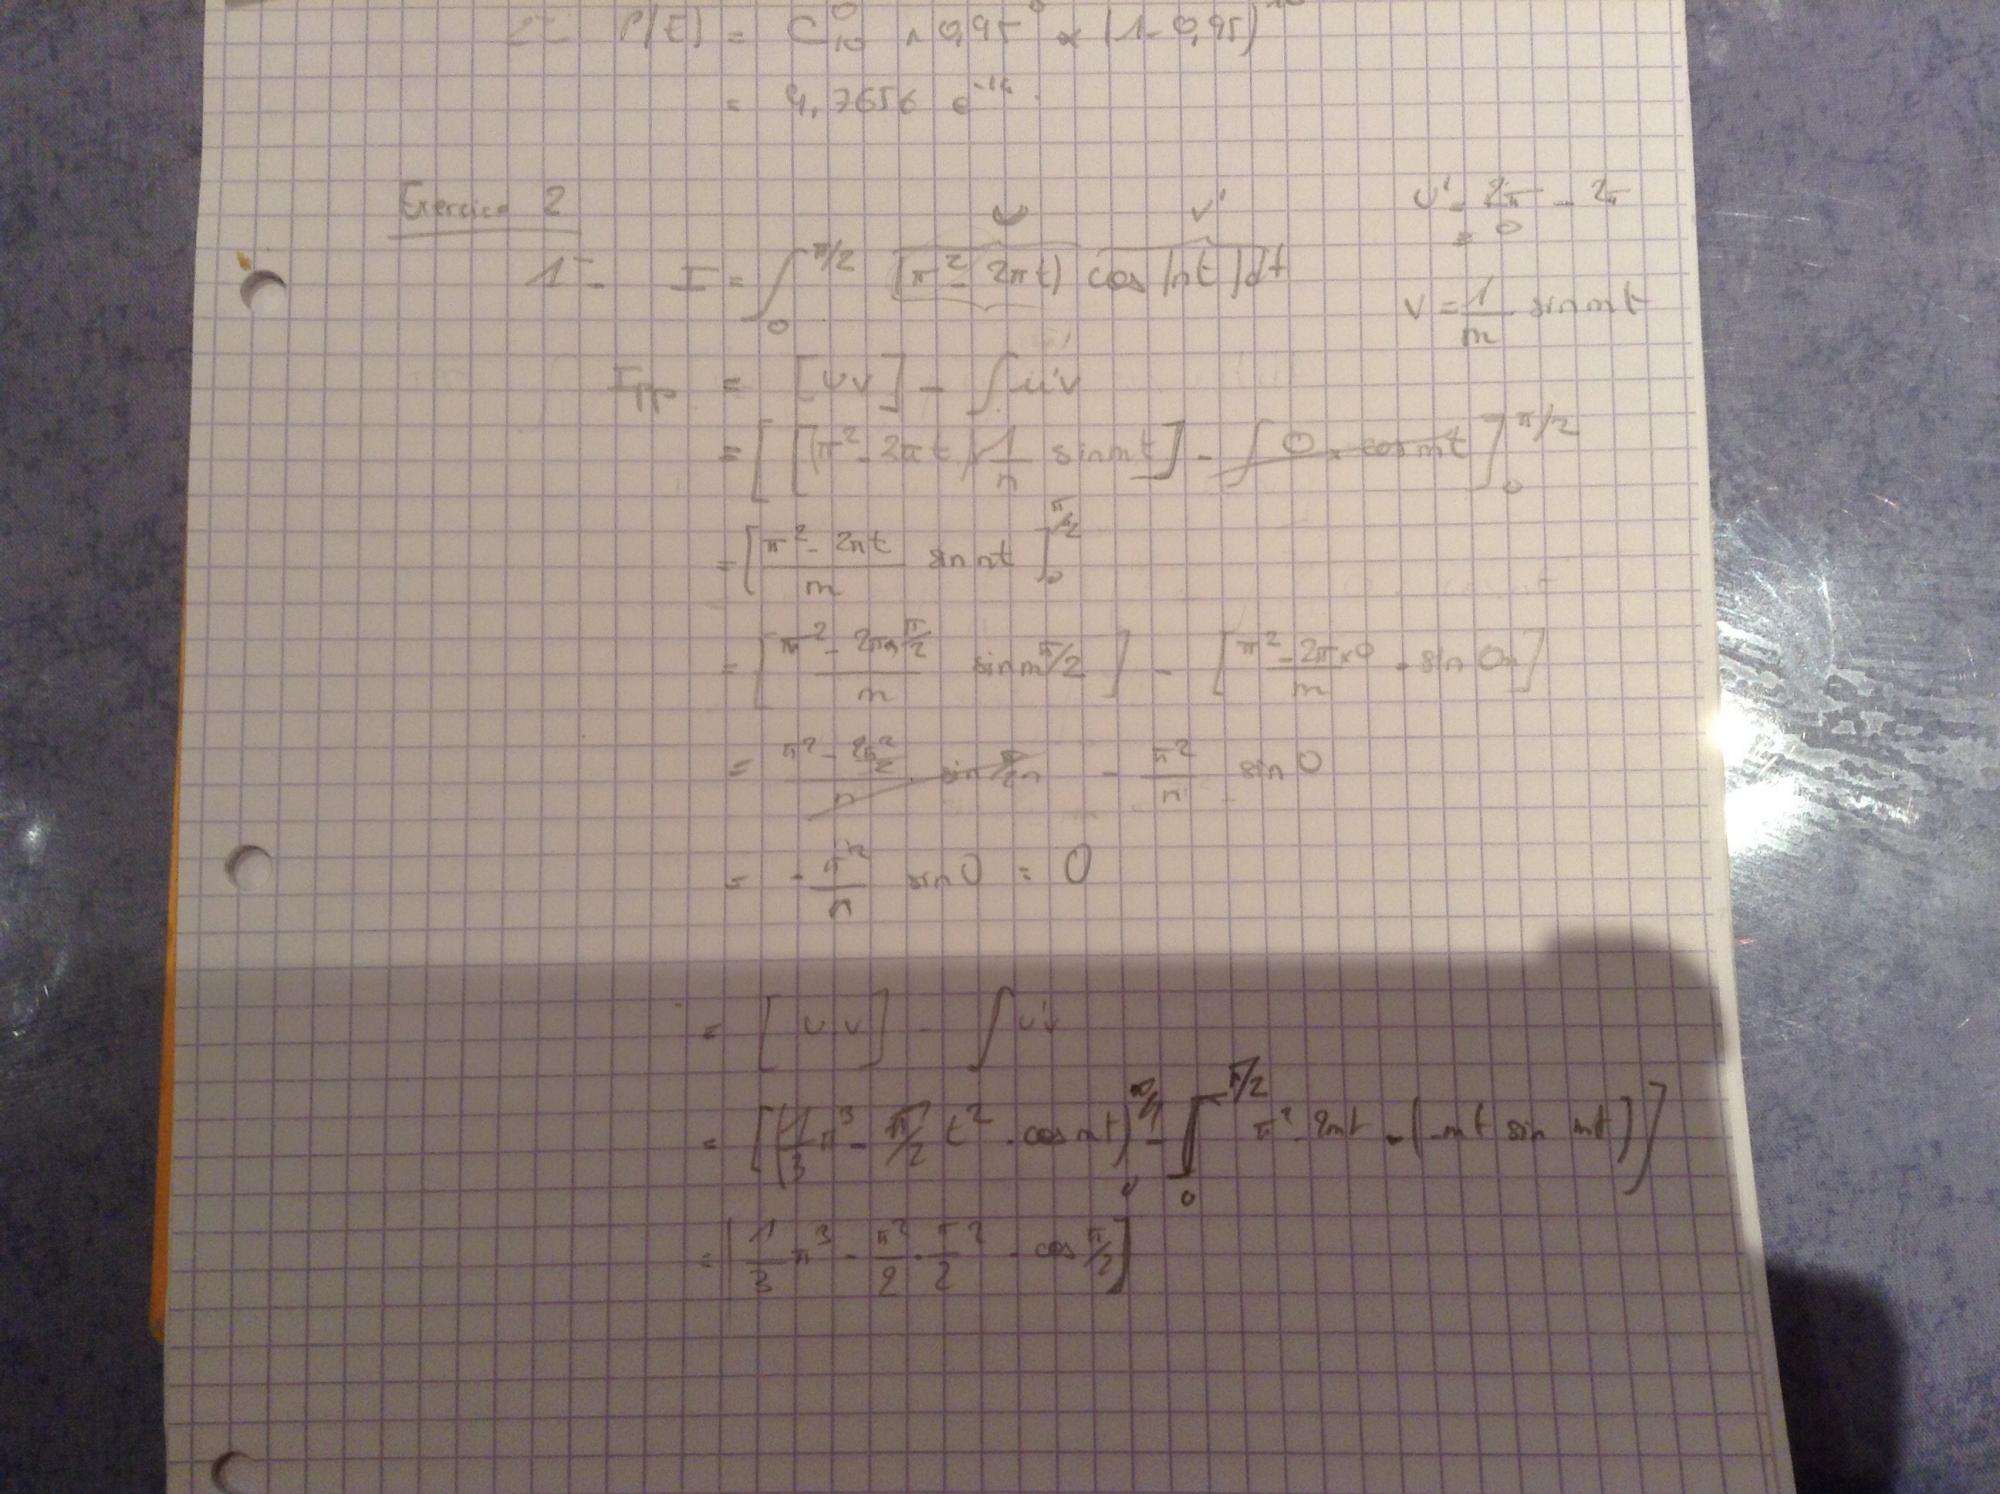 P(E) = C₁₀⁰ × 0,95⁰ × (1 - 0,95)¹⁰
= 9,7656 e⁻¹⁴.
Exercice 2
u v' u' = 2π - 2π
= 0
1 - I = ∫₀^{π/2} (π² - 2πt) cos(nt) dt
v = 1/n sin nt
Ipp = [uv] - ∫u'v
= [[(π² - 2πt) 1/n sin nt] - ∫ 0 × cos nt]₀^{π/2}
= [(π² - 2πt)/n sin nt]₀^{π/2}
= [(π² - 2π × π/2)/n sin n π/2] - [(π² - 2π×0)/n × sin 0n]
= (π² - 2π²/2)/n sin π/2 n - π²/n sin 0
= - π²/n sin 0 = 0
= [uv] - ∫u'v
= [(1/3 π³ - π/2 t² · cos nt) - ∫₀^{π/2} π² - 2πt · (-nt sin nt)]
= [1/3 π³ - π²/2 · π/2² · cos π/2]